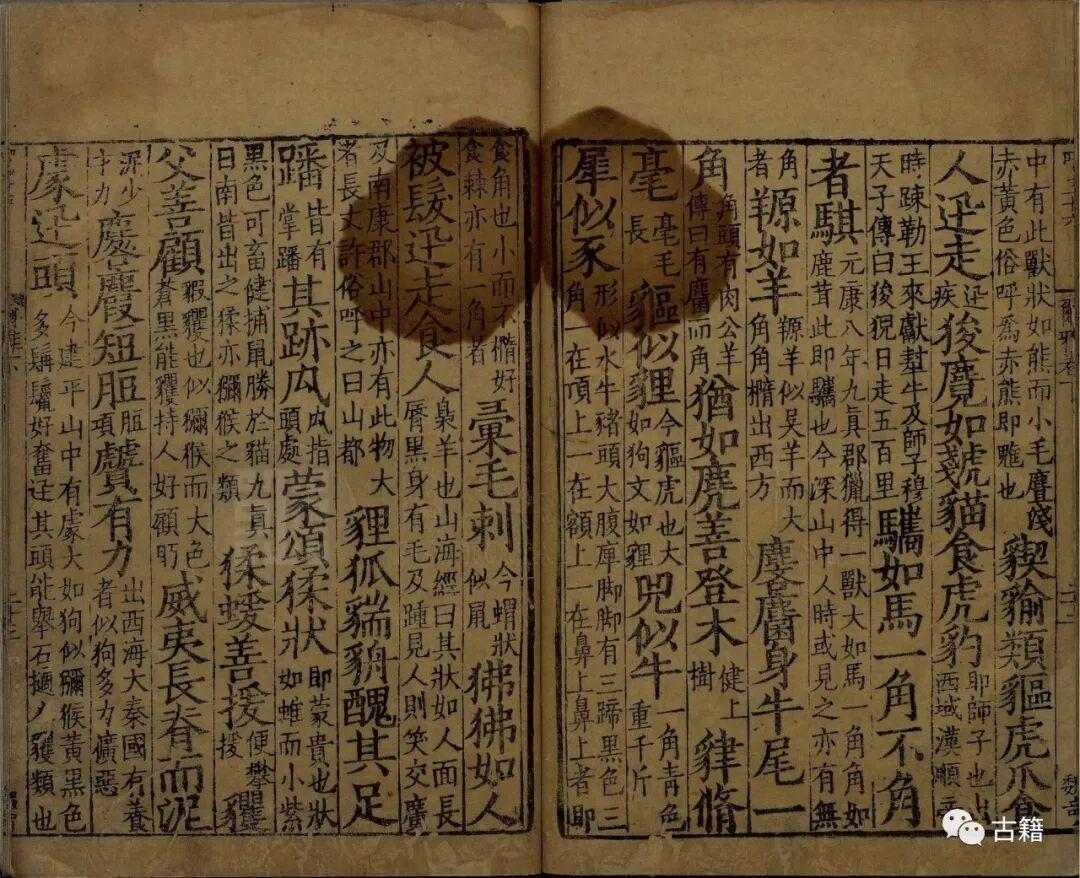 中有此獸狀如熊而小毛麆淺赤黃色俗呼爲赤熊即魋也猰貐類貙虎爪食
人迅走迅疾狻麑如虦貓食虎豹即師子也出西域漢順帝
時踈勒王來獻犎牛及師子穆天子傳曰狻猊日走五百里驨如馬一角不角
者騏元康八年九真郡獵得一獸大如馬一角角如鹿茸此即驨也今深山中人時或見之亦有無
角者羱如羊羱羊似吳羊而大角角橢出西方麠麃身牛尾一
角角頭有肉公羊傳曰有麕而角猶如麂善登木健上樹貄脩
毫毫毛長貙似貍今貙虎也大如狗文如貍兕似牛一角青色重千斤
犀似豕形似水牛豬頭大腹庳脚脚有三蹄黑色三角一在頂上一在額上一在鼻上鼻上者即
食角也小而不橢好食棘亦有一角者彙毛刺今蝟狀似鼠狒狒如人
被髮迅走食人梟羊也山海經曰其狀如人面長脣黑身有毛及踵見人則笑交廣
及南康郡山中亦有此物大者長丈許俗呼之曰山都貍狐貒貈醜其足
蹯皆有掌蹯其跡厹厹指頭處蒙頌猱狀即蒙貴也狀如蜼而小紫
黑色可畜健捕鼠勝於貓九真日南皆出之猱亦獼猴之類猱蝯善援便攀援貜
父善顧貑貜也似獼猴而大色蒼黑能貜持人好顧盼威夷長脊而泥
泥少才力麔麚短脰脰項贙有力出西海大秦國有養者似狗多力獷惡
豦迅頭今建平山中有豦大如狗似獼猴黃黑色多髯鬛好奮迅其頭能舉石擿人玃類也
古籍